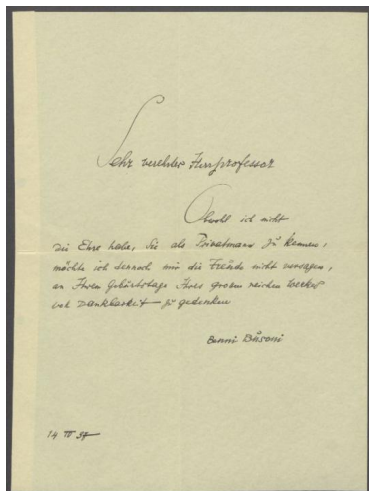 Sehr verehrter Herrprofessor
Obwohl ich nicht
die Ehre habe, Sie als Privatmann zu kennen,
möchte ich dennoch mir die Freude nicht versagen,
an Ihrem Geburtstage Ihres grossen reichen Werkes
voll Dankbarkeit zu gedenken
Benni Busoni
14 IV 37